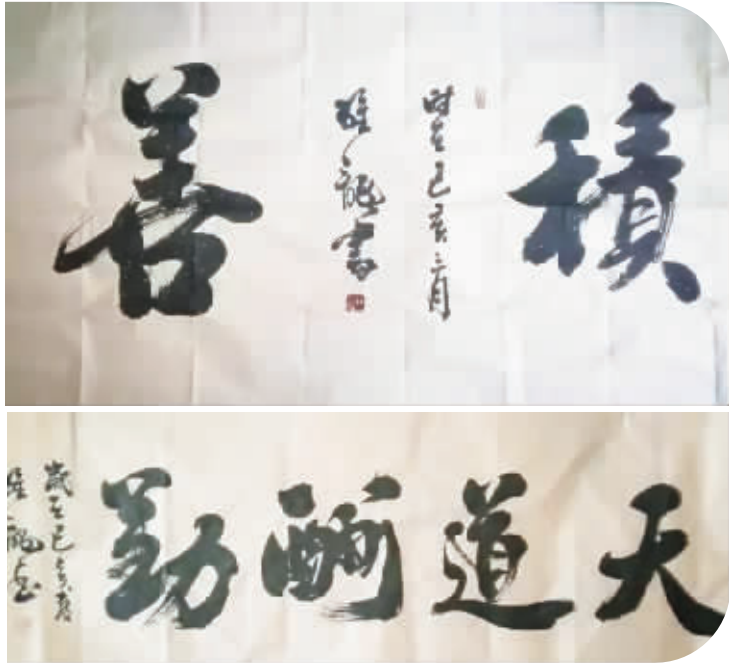 積善
時在己亥三月
雄龍書
天道酬勤
歲在己亥
雄龍書